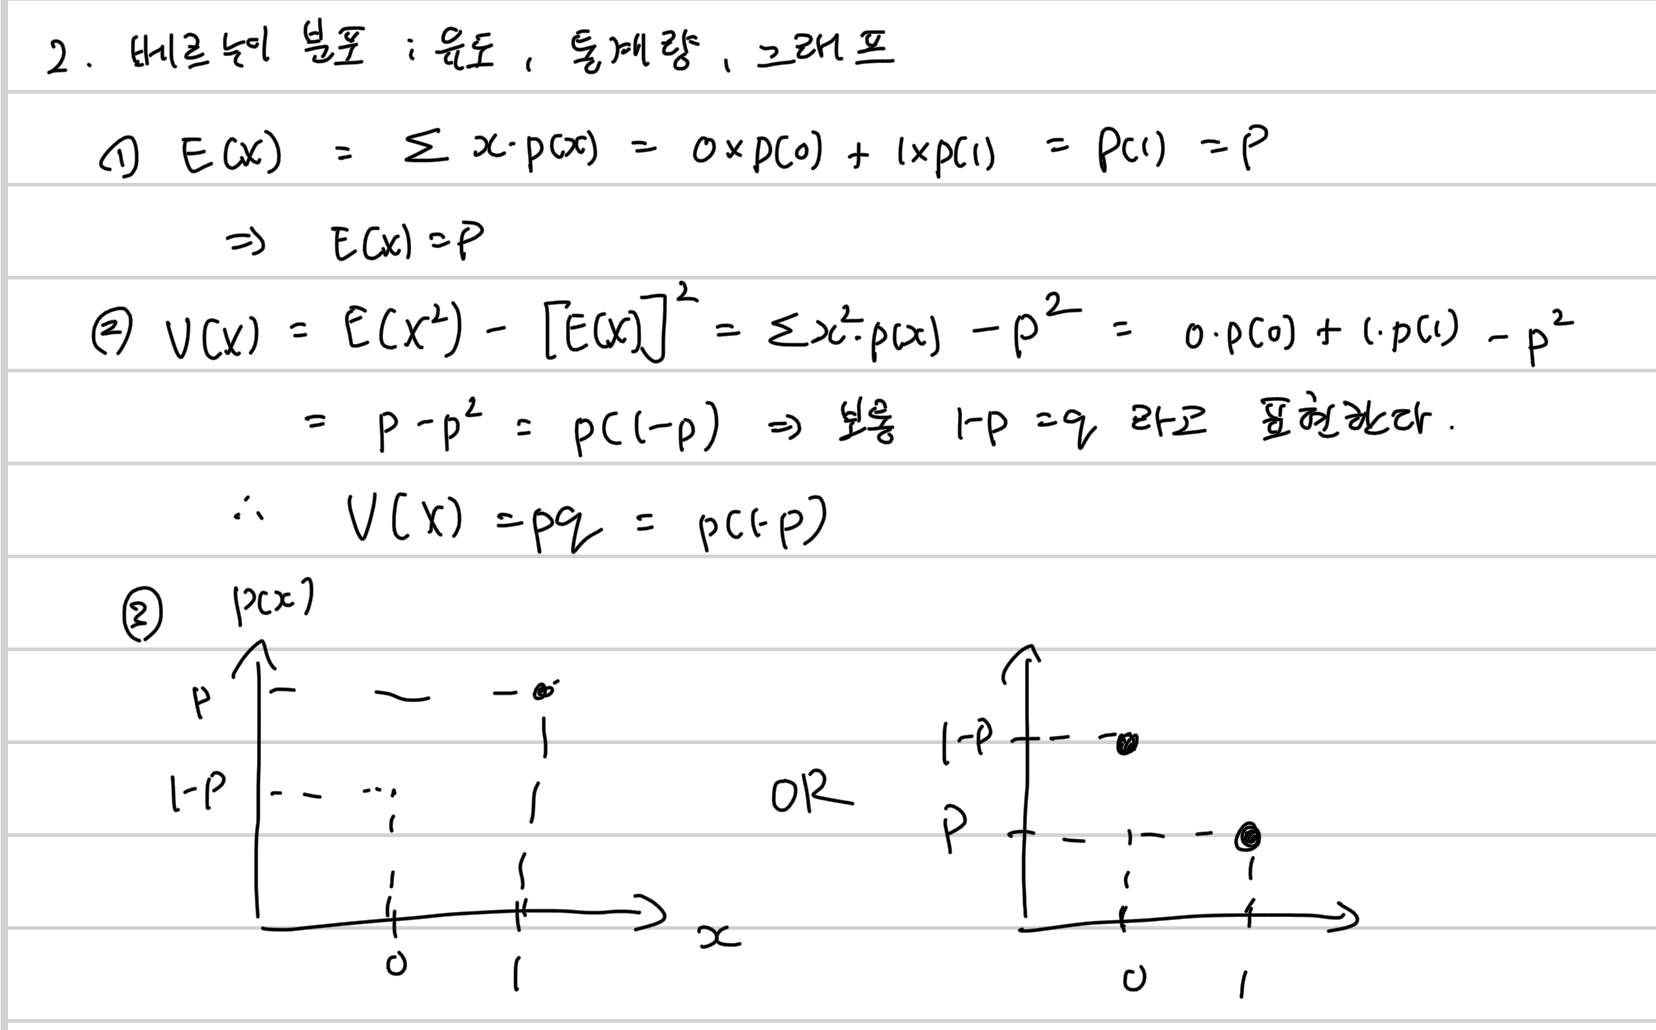 2. 베르누이 분포 ; 유도, 통계량, 그래프
① E(X) = Σ x·p(x) = 0×p(0) + 1×p(1) = P(1) = P
⇒ E(X) = P
② V(X) = E(X²) - [E(X)]² = Σx²·p(x) - p² = 0·p(0) + 1·p(1) - p²
= p - p² = p(1-p) ⇒ 보통 1-p = q 라고 표현한다.
∴ V(X) = pq = p(1-p)
③ p(x)
P
1-P
0 1 x
OR
1-P
P
0 1